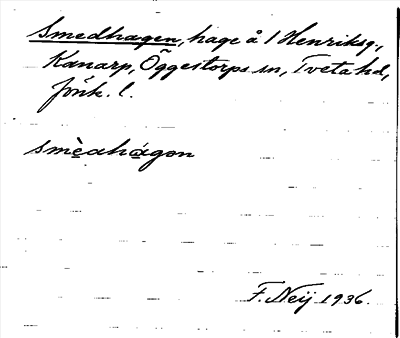 Smedhagen, hage å 1 Henriksg.,
Kanarp, Öggestorps sn, Tveta hd,
Jönk. l.
smèdhágon
F. Neij 1936.